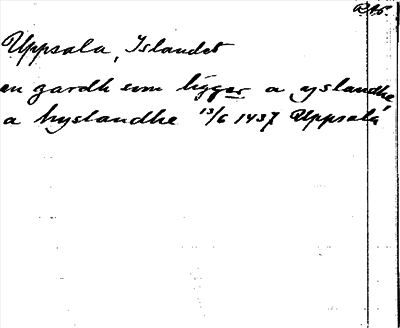 RAp.
Uppsala, Islandet
en gardh som ligger a yslandhe
a hyslandhe 13/6 1437 Uppsala